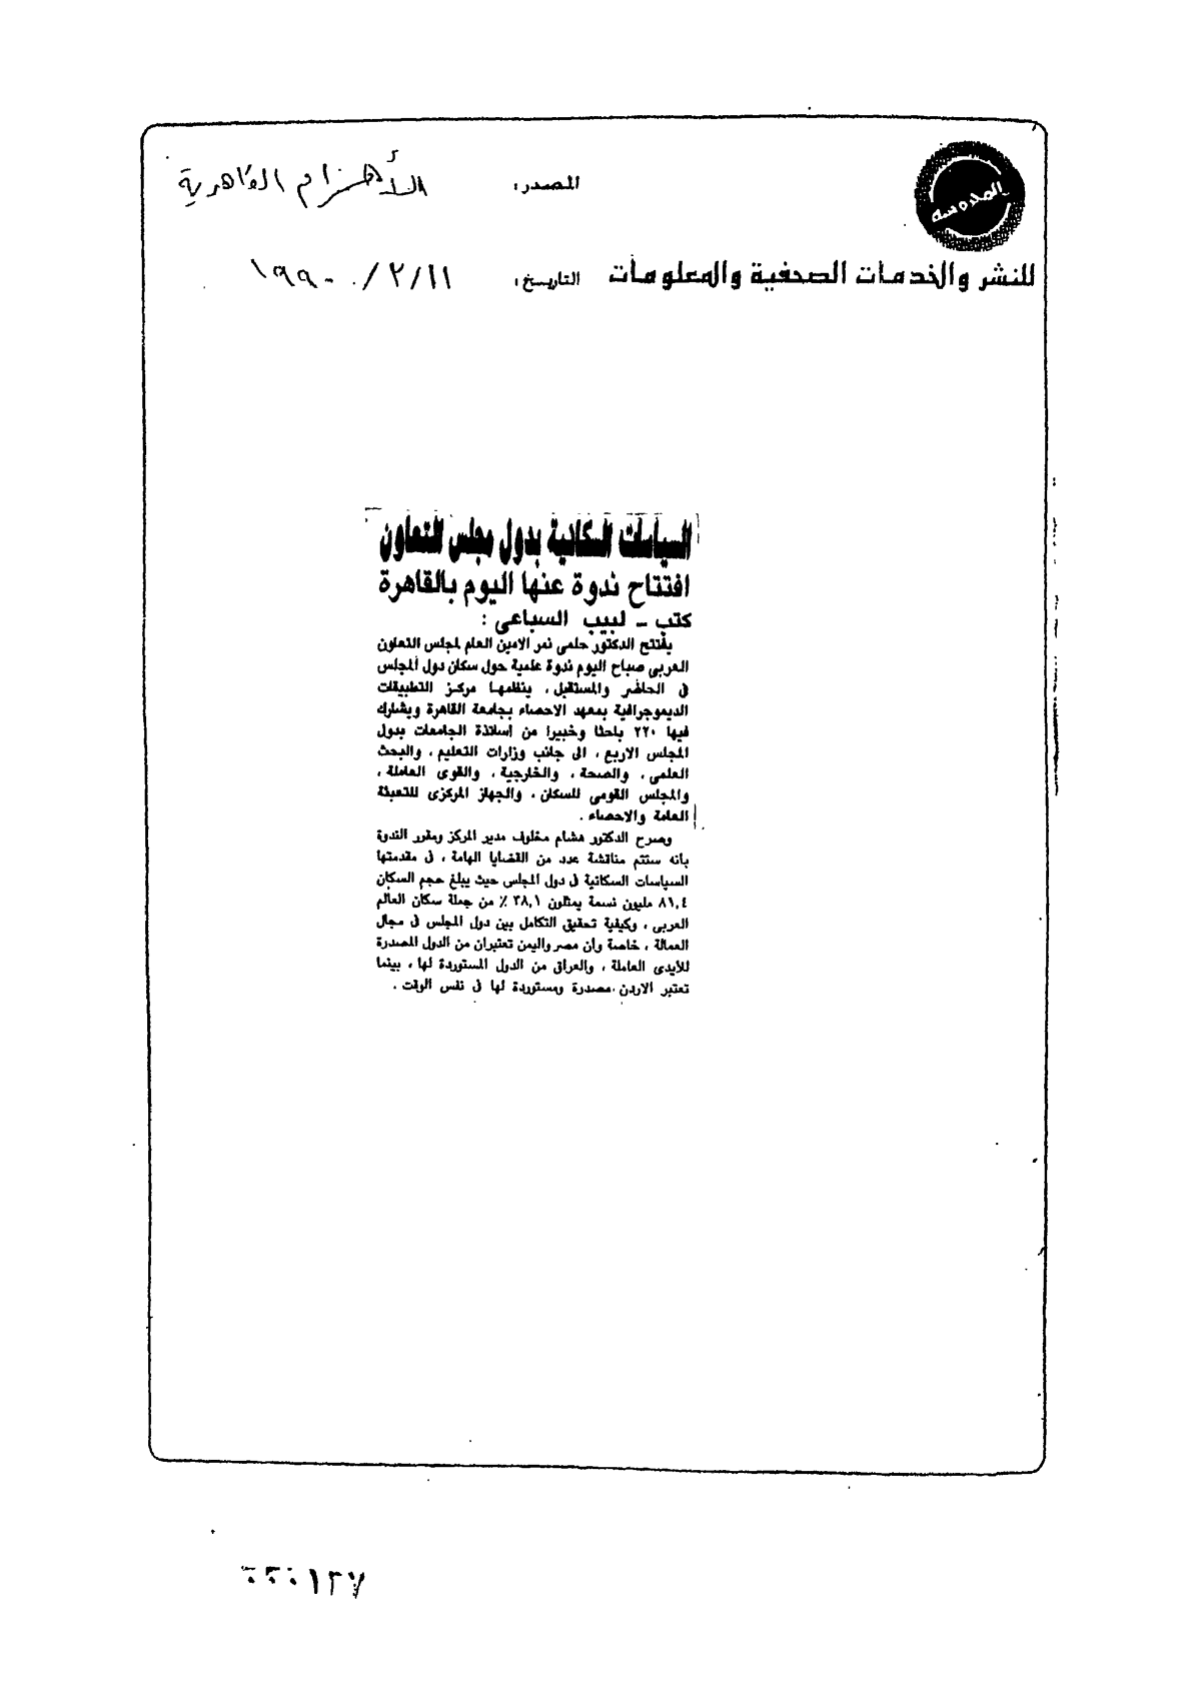 المصدر: الأهرام القاهرية
المحروسة
للنشر والخدمات الصحفية والمعلومات
التاريخ: ١٩٩٠/٢/١١
السياسات السكانية بدول مجلس التعاون
افتتاح ندوة عنها اليوم بالقاهرة
كتب - لبيب السباعى :
يفتتح الدكتور حلمى نمر الامين العام لمجلس التعاون
العربى صباح اليوم ندوة علمية حول سكان دول المجلس
فى الحاضر والمستقبل ، ينظمها مركز التطبيقات
الديموجرافية بمعهد الاحصاء بجامعة القاهرة ويشارك
فيها ٢٢٠ باحثا وخبيرا من اساتذة الجامعات بدول
المجلس الاربع ، الى جانب وزارات التعليم ، والبحث
العلمى ، والصحة ، والخارجية ، والقوى العاملة ،
والمجلس القومى للسكان ، والجهاز المركزى للتعبئة
العامة والاحصاء .
وصرح الدكتور هشام مخلوف مدير المركز ومقرر الندوة
بانه ستتم مناقشة عدد من القضايا الهامة ، فى مقدمتها
السياسات السكانية فى دول المجلس حيث يبلغ حجم السكان
٨١,٤ مليون نسمة يمثلون ٣٨,١ ٪ من جملة سكان العالم
العربى ، وكيفية تحقيق التكامل بين دول المجلس فى مجال
العمالة ، خاصة وان مصر واليمن تعتبران من الدول المصدرة
للأيدى العاملة ، والعراق من الدول المستوردة لها ، بينما
تعتبر الاردن مصدرة ومستوردة لها فى نفس الوقت .